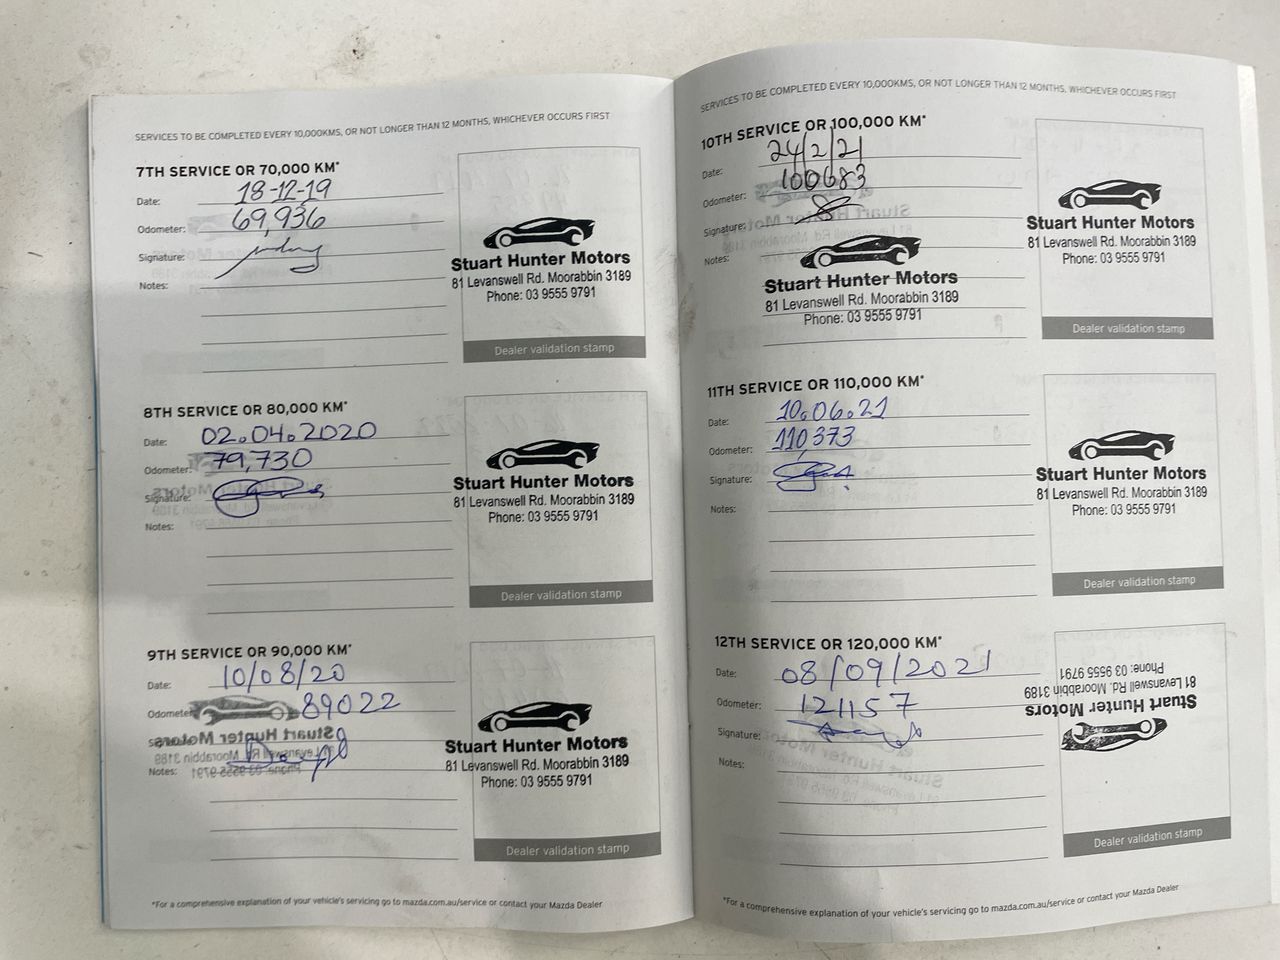 SERVICES TO BE COMPLETED EVERY 10,000KMS, OR NOT LONGER THAN 12 MONTHS, WHICHEVER OCCURS FIRST
7TH SERVICE OR 70,000 KM*
Date: 18-12-19
Odometer: 69,936
Signature:
Notes:
Stuart Hunter Motors
81 Levanswell Rd. Moorabbin 3189
Phone: 03 9555 9791
Dealer validation stamp
8TH SERVICE OR 80,000 KM*
Date: 02.04.2020
Odometer: 79,730
Signature:
Notes:
Stuart Hunter Motors
81 Levanswell Rd. Moorabbin 3189
Phone: 03 9555 9791
Dealer validation stamp
9TH SERVICE OR 90,000 KM*
Date: 10/08/20
Odometer: 89022
Notes:
Stuart Hunter Motors
81 Levanswell Rd. Moorabbin 3189
Phone: 03 9555 9791
Dealer validation stamp
*For a comprehensive explanation of your vehicle's servicing go to mazda.com.au/service or contact your Mazda Dealer
SERVICES TO BE COMPLETED EVERY 10,000KMS, OR NOT LONGER THAN 12 MONTHS, WHICHEVER OCCURS FIRST
10TH SERVICE OR 100,000 KM*
Date: 24/2/21
Odometer: 100683
Signature:
Notes:
Stuart Hunter Motors
81 Levanswell Rd. Moorabbin 3189
Phone: 03 9555 9791
Stuart Hunter Motors
81 Levanswell Rd. Moorabbin 3189
Phone: 03 9555 9791
Dealer validation stamp
11TH SERVICE OR 110,000 KM*
Date: 10.06.21
Odometer: 110,373
Signature:
Notes:
Stuart Hunter Motors
81 Levanswell Rd. Moorabbin 3189
Phone: 03 9555 9791
Dealer validation stamp
12TH SERVICE OR 120,000 KM*
Date: 08/09/2021
Odometer: 121157
Signature:
Notes:
Stuart Hunter Motors
81 Levanswell Rd. Moorabbin 3189
Phone: 03 9555 9791
Dealer validation stamp
*For a comprehensive explanation of your vehicle's servicing go to mazda.com.au/service or contact your Mazda Dealer